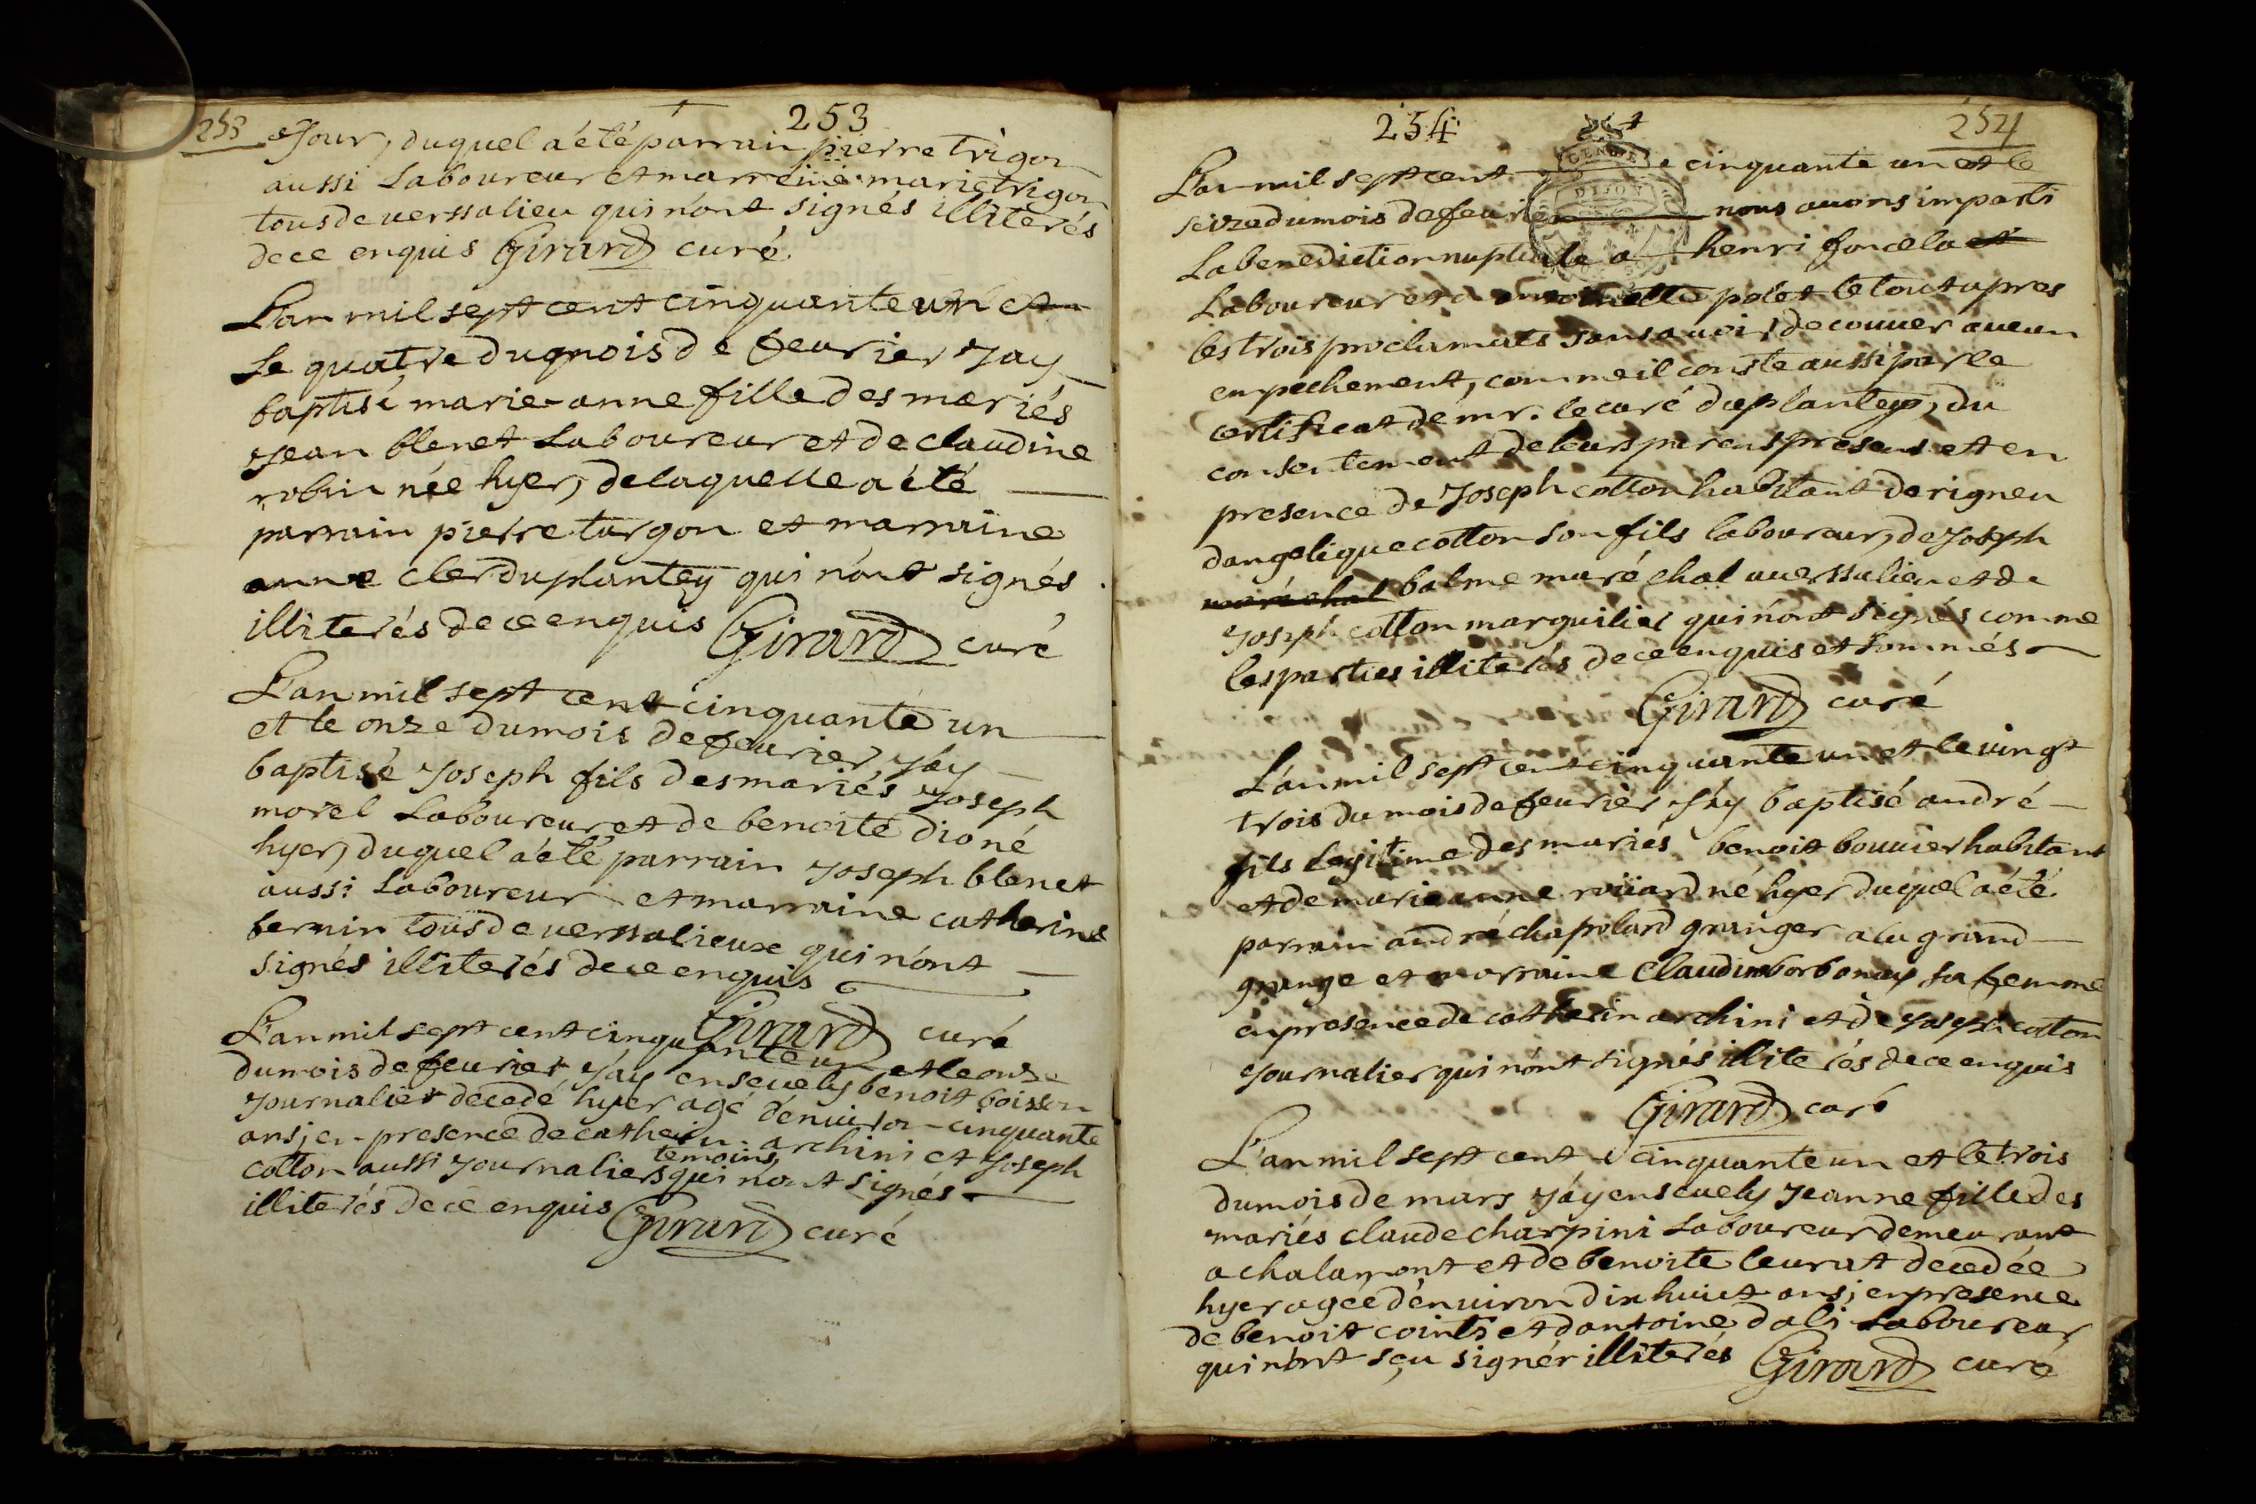 253
253
Jour, duquel a été parrain pierre trigon
aussi Laboureur et marreine marie trigon
tous de verssalieu qui n'ont signés illiterés
de ce enquis Girard curé
L'an mil sept cent cinquante un et
Le quatre du mois de feurier J'ay
baptisé marie-anne fille des mariés
Jean blenet Laboureur et de claudine
robin née hyer, de laquelle a été
parrain pierre targon et marraine
anne cler du plantey qui n'ont signés
illiterés de ce enquis Girard curé
L'an mil sept cent cinquante un
et le onze du mois de feurier J'ay
baptisé Joseph fils des mariés Joseph
morel Laboureur et de benoite dioné
hyer, duquel a été parrain Joseph blenet
aussi Laboureur et marraine catherine
bernin tous de verssalieux qui n'ont
signés illiterés de ce enquis
Girard curé
L'an mil sept cent cinquante un et le onze
du mois de feurier J'ay enseuely benoit boisson
Journalier decedé hyer agé d'enuiron cinquante
ans, en presence de catherin archini et Joseph
cotton aussi Journaliers temoins qui n'ont signés
illiterés de ce enquis Girard curé
254
254
GEN DE
DIJON
L'an mil sept cent cinquante un et le
seize du mois de feurier nous auons imparti
La benediction nuptiale a henri foncela et
Laboureur et a polet le tout apres
les trois proclamats sans auoir decouuer aucun
enpechement, comme il conste aussi par le
certificat de mr. le curé du plantey, du
consentement de leurs parens presens et en
presence de Joseph cotton habitant de rigneu
d'angelique cotton son fils laboureur, de Joseph
maréchal balme maréchal a verssalieu et de
Joseph cotton marguilier qui n'ont signés comme
les parties illiterés de ce enquis et sommés
Girard curé
L'an mil sept cent cinquante un et le uingt
trois du mois de feurier J'ay baptisé andré
fils legitime des mariés benoit bouuier habitant
et de marie anne roüard né hyer duquel a été
parrain andré chapolard granger a la grand
grange et marraine Claudine borbonay sa femme
en presence de catherin archini et de Joseph cotton
Journalier qui n'ont signés illiterés de ce enquis
Girard curé
L'an mil sept cent cinquante un et le trois
du mois de mars J'ay enseuely Jeanne fille des
mariés claude charpini Laboureur demeurant
a chalamont et de benoite leurat decedée
hyer agée d'enuiron dix huict ans, en presence
de benoit cointi et d'antoine dali Laboureur
qui n'ont sçu signér illiterés Girard curé